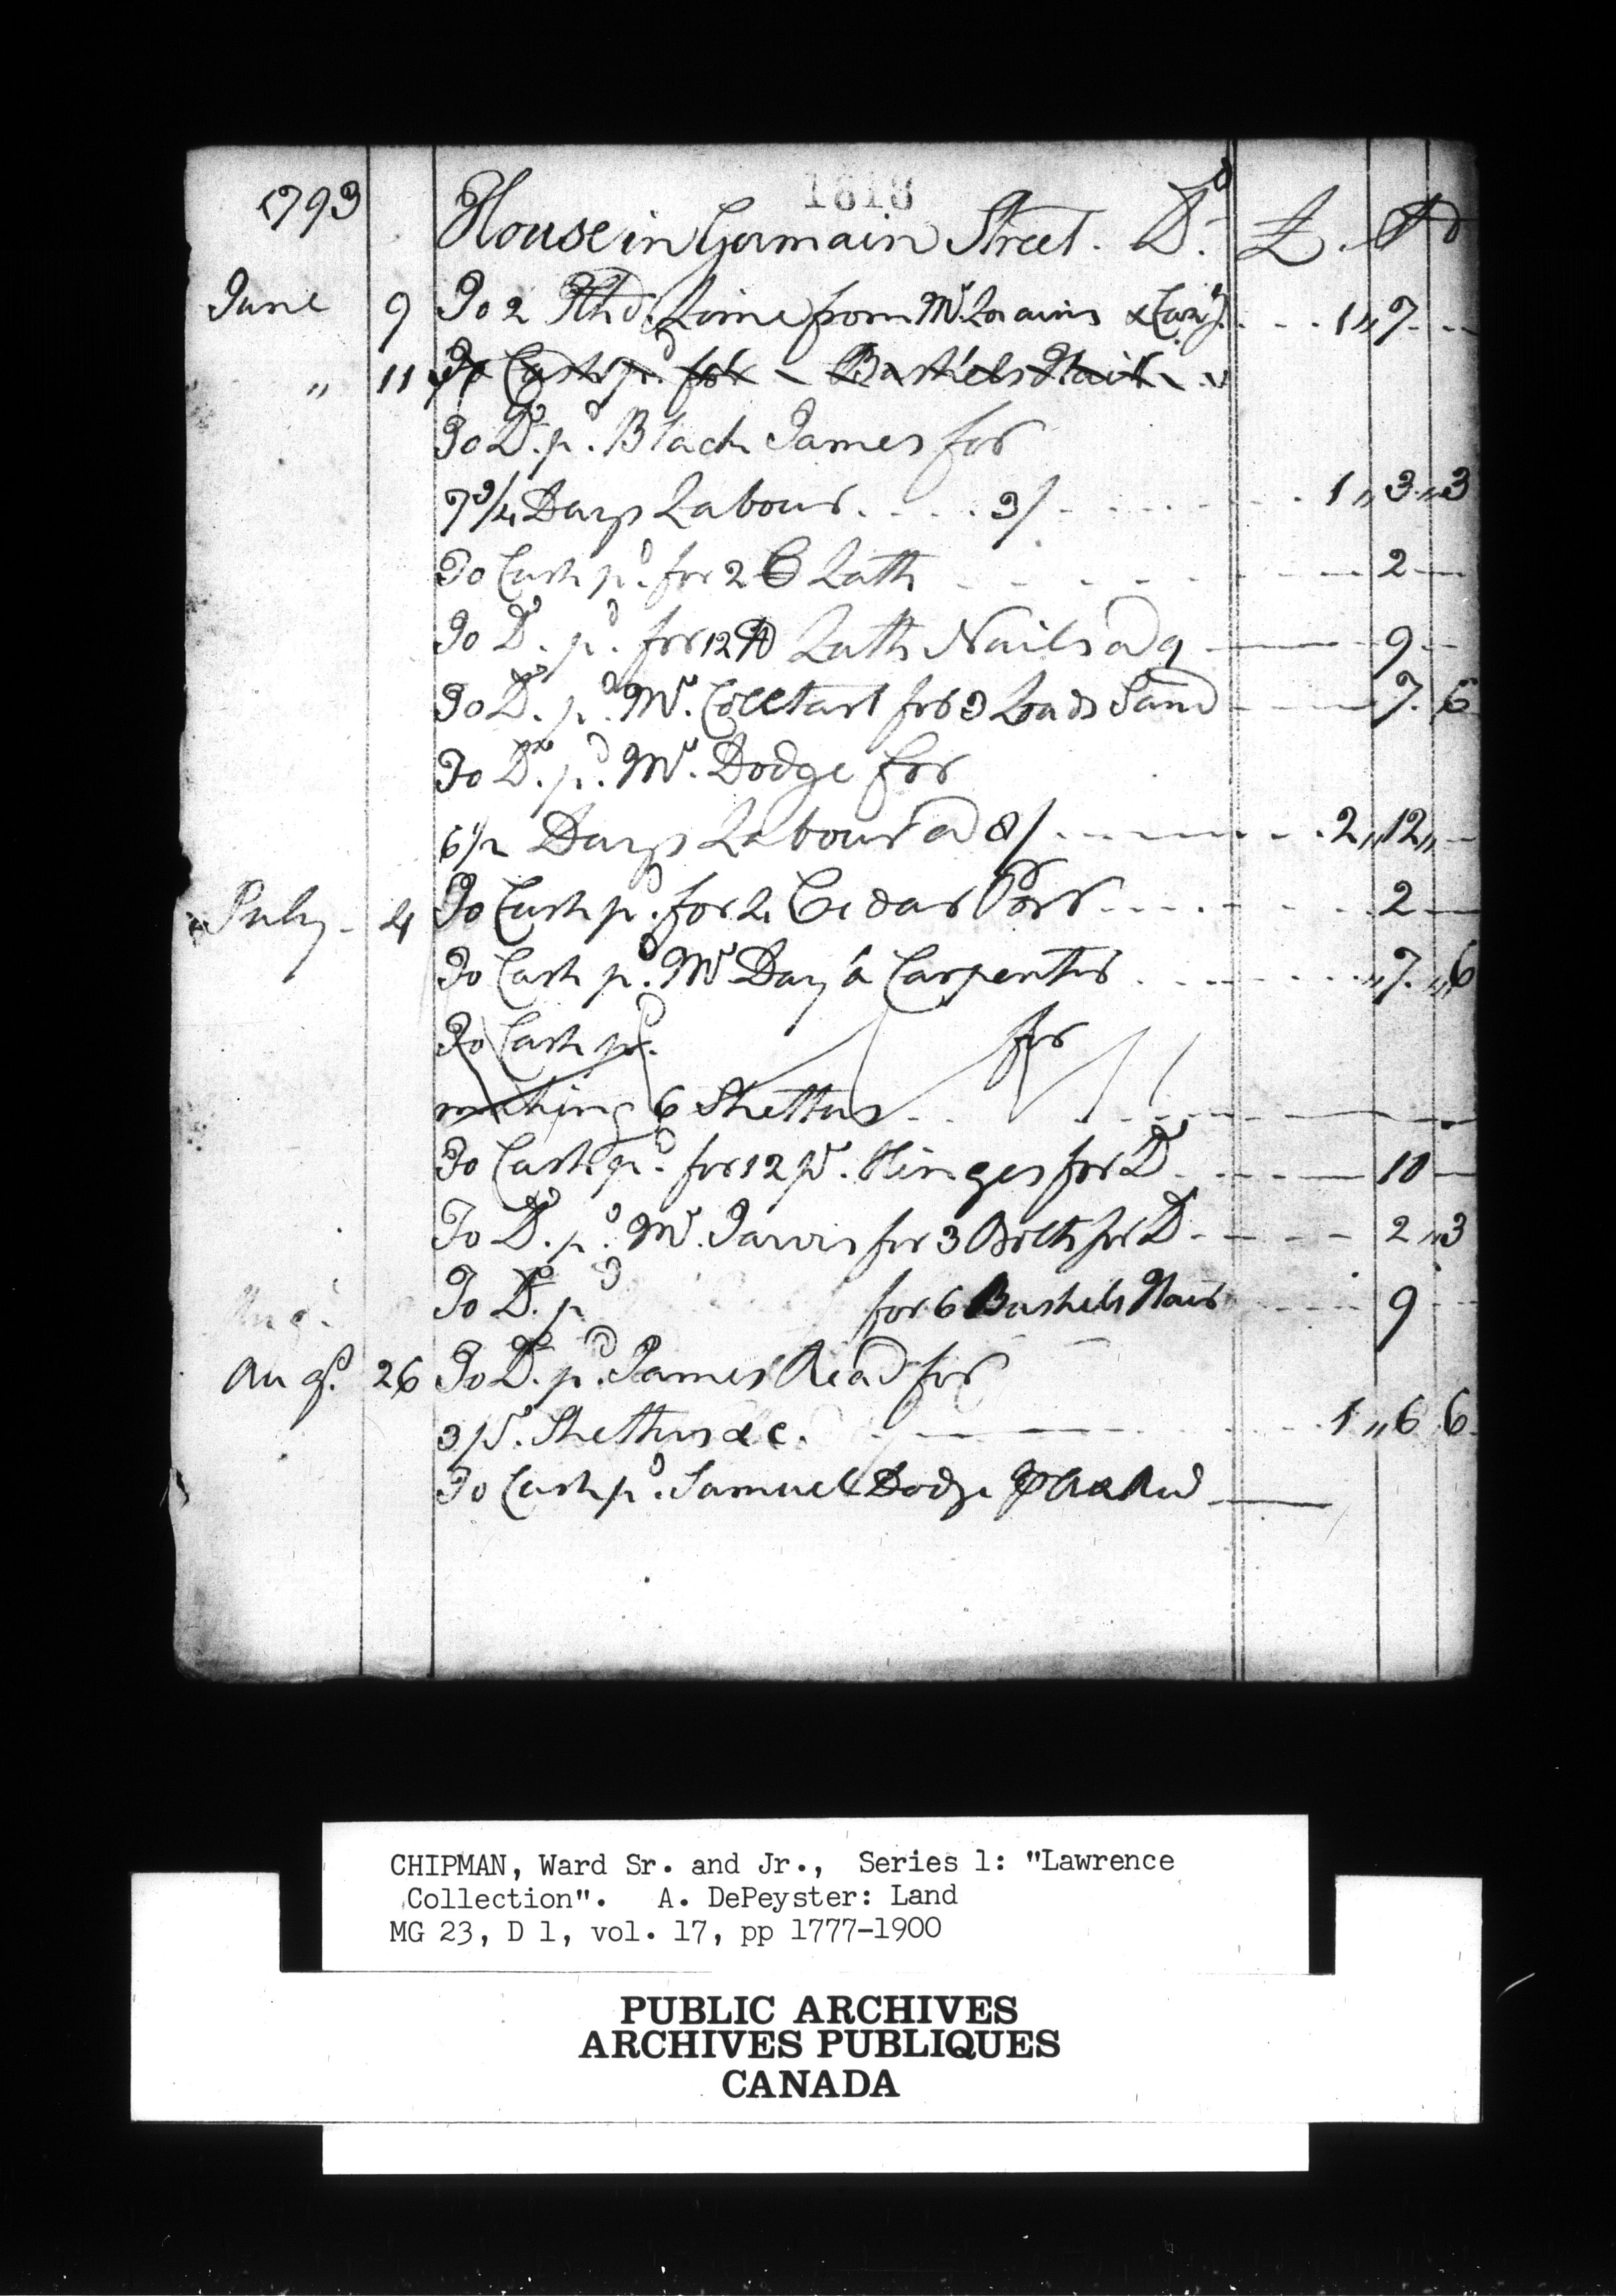 1818
1793 House in Germain Street. Dr. £. s d
June 9 To 2 Hhds Lime from Mr. Loains & Cart'g. 1 " 7
" 11 To Cash pd. for - Bushels Hair
To Do. pd. Black James for
7 3/4 Days Labour. 3/ 1 " 3 " 3
To Cash pd. for 2 C Lath 2
To Do. pd. for 12 lb Lath Nails a 9 9
To Do. pd. Mr. for 3 Loads Sand 7. 6
To Do. pd. Mr. Dodge for
6 1/2 Days Labour a 8/ 2 " 12 "
July 4 To Cash pd. for 2 Cedar Posts 2
To Cash pd. Mr Day a Carpenter " 7. " 6
To Cash pd. for
making 6 Shetters
To Cash pd. for 12 pr. Hinges for Do 10
To Do. pd. Mr. Jarvis for 3 Bolts for Do 2 " 3
To Do. pd for 6 Bushels Hair 9
Augt. 26 To Do. pd. James Read for
3 pr. Shetters &c. 1 " 6 6
To Cash pd. Samuel Dodge
CHIPMAN, Ward Sr. and Jr., Series 1: "Lawrence
Collection". A. DePeyster: Land
MG 23, D 1, vol. 17, pp 1777-1900
PUBLIC ARCHIVES
ARCHIVES PUBLIQUES
CANADA